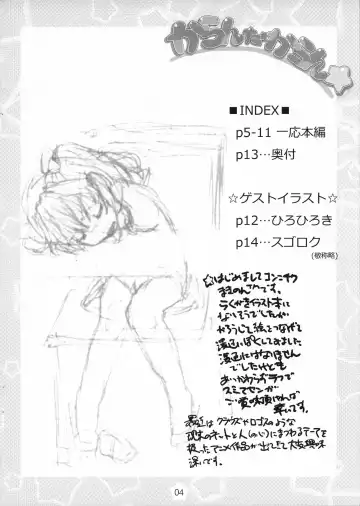 からしだがらし
■INDEX■
p5-11 一応本編
p13…奥付
☆ゲストイラスト☆
p12…ひろひろき
p14…スゴロク
(敬称略)
☆はじめましてコンニチワ
まきのんきです。
らくがきイラスト本に
なりそうでしたが
かろうじて絵とつなげて
漫画っぽくしてみました
漫画にはなりません
でしたけども
あいかわらずラフで
スミマセンが
ご賞味頂ければ
幸いです。
最近はクラウズやロゴスのような
現来のネットと人(の心)にまつわるテーマを
扱ったアニメ作品が出てきて大変興味
深いです。
04